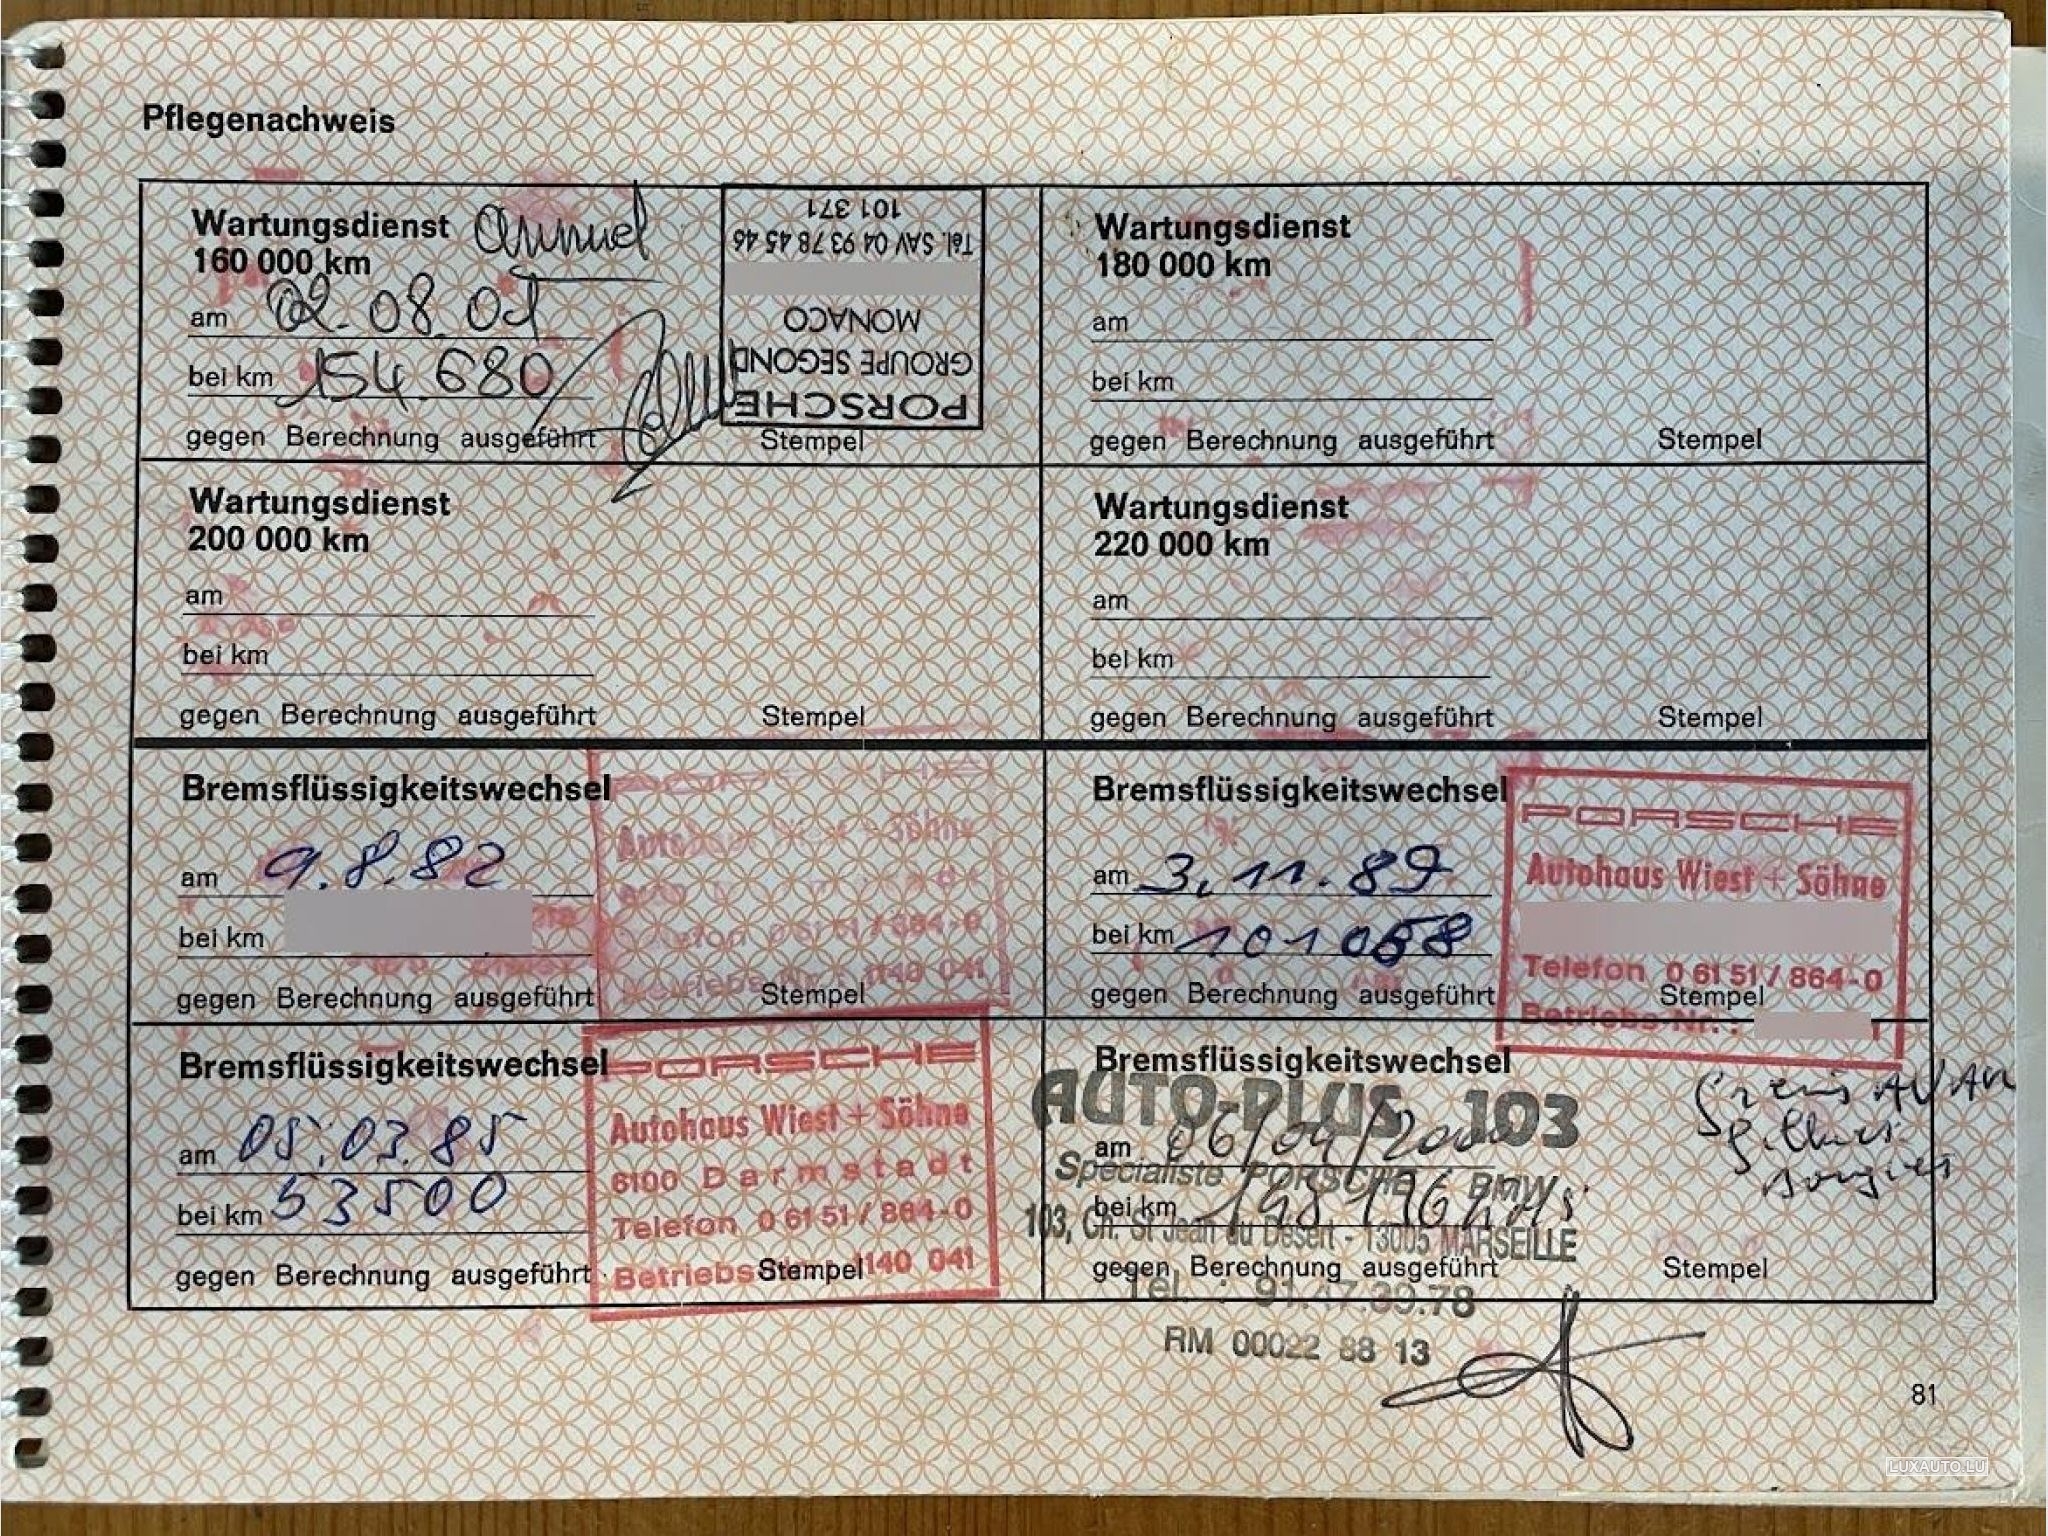 Pflegenachweis
Wartungsdienst Annuel
160 000 km
am 02.08.01
bei km 154.680
gegen Berechnung ausgeführt
Stempel
PORSCHE
GROUPE SEGOND
MONACO
Tél. SAV 04 93 78 45 46
101 371
Wartungsdienst
180 000 km
am
bei km
gegen Berechnung ausgeführt
Stempel
Wartungsdienst
200 000 km
am
bei km
gegen Berechnung ausgeführt
Stempel
Wartungsdienst
220 000 km
am
bei km
gegen Berechnung ausgeführt
Stempel
Bremsflüssigkeitswechsel
am 9.8.82
bei km
gegen Berechnung ausgeführt
Stempel
PORSCHE
Autohaus Wiest + Söhne
Telefon 0 61 51 / 864-0
Betriebs-Nr.: 1140 041
Bremsflüssigkeitswechsel
am 3.11.89
bei km 101058
gegen Berechnung ausgeführt
Stempel
PORSCHE
Autohaus Wiest + Söhne
Telefon 0 61 51 / 864-0
Betriebs-Nr.:
Bremsflüssigkeitswechsel
am 05.03.85
bei km 53500
gegen Berechnung ausgeführt
Stempel
PORSCHE
Autohaus Wiest + Söhne
6100 Darmstadt
Telefon 0 61 51 / 864-0
Betriebs 1140 041
Bremsflüssigkeitswechsel
am 06/04/2000
bei km
gegen Berechnung ausgeführt
Stempel
AUTO-PLUS 103
Spécialiste PORSCHE - BMW
103, Ch. St Jean du Désert - 13005 MARSEILLE
Tél. : 91.47.39.78
RM 00022 88 13
81
LUXAUTO.LU